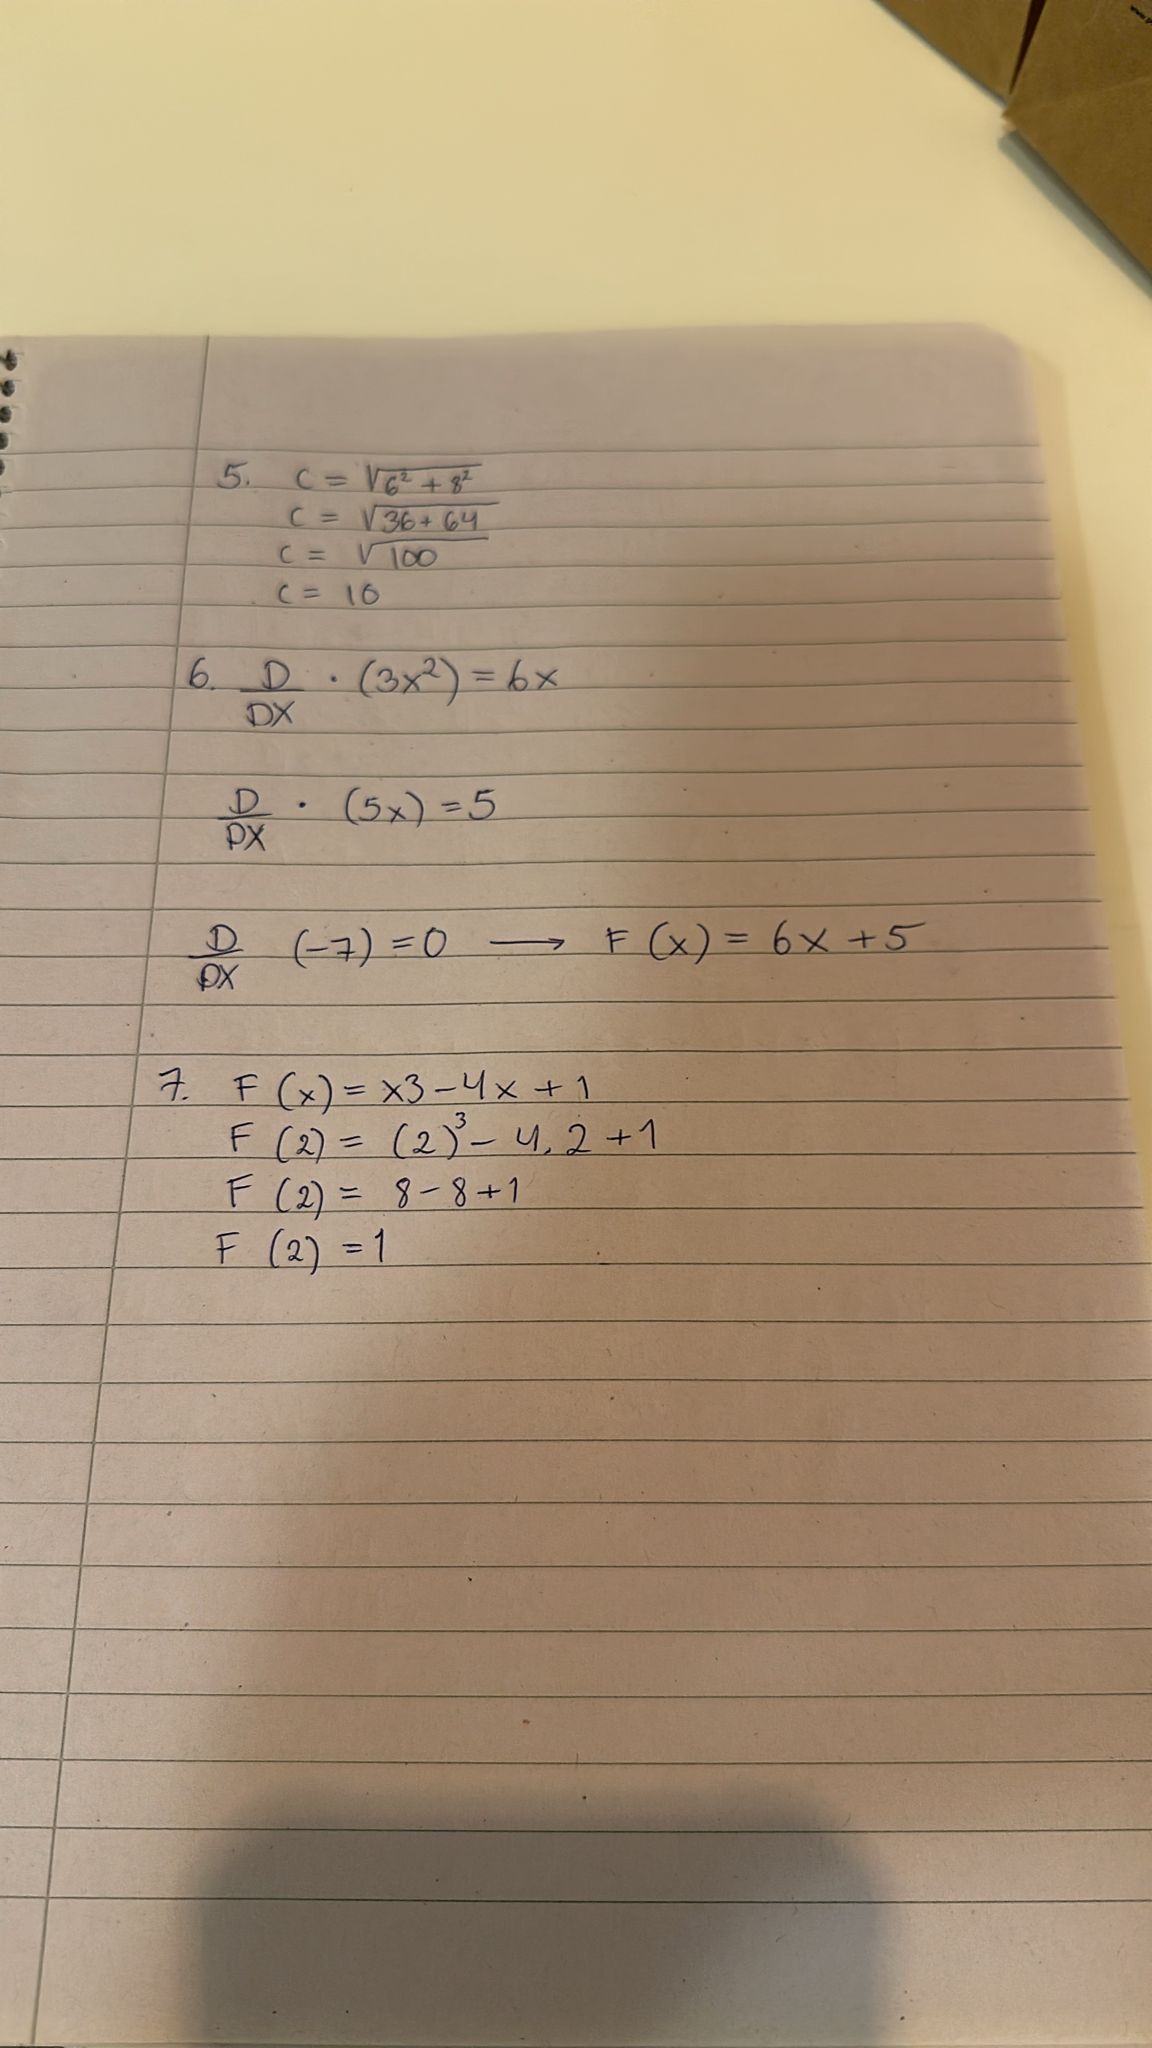 5. C = √6² + 8²
C = √36 + 64
C = √100
C = 10
6. D/DX · (3x²) = 6x
D/DX · (5x) = 5
D/DX (-7) = 0 → F (x) = 6x + 5
7. F (x) = x3 - 4x + 1
F (2) = (2)³ - 4. 2 + 1
F (2) = 8 - 8 + 1
F (2) = 1